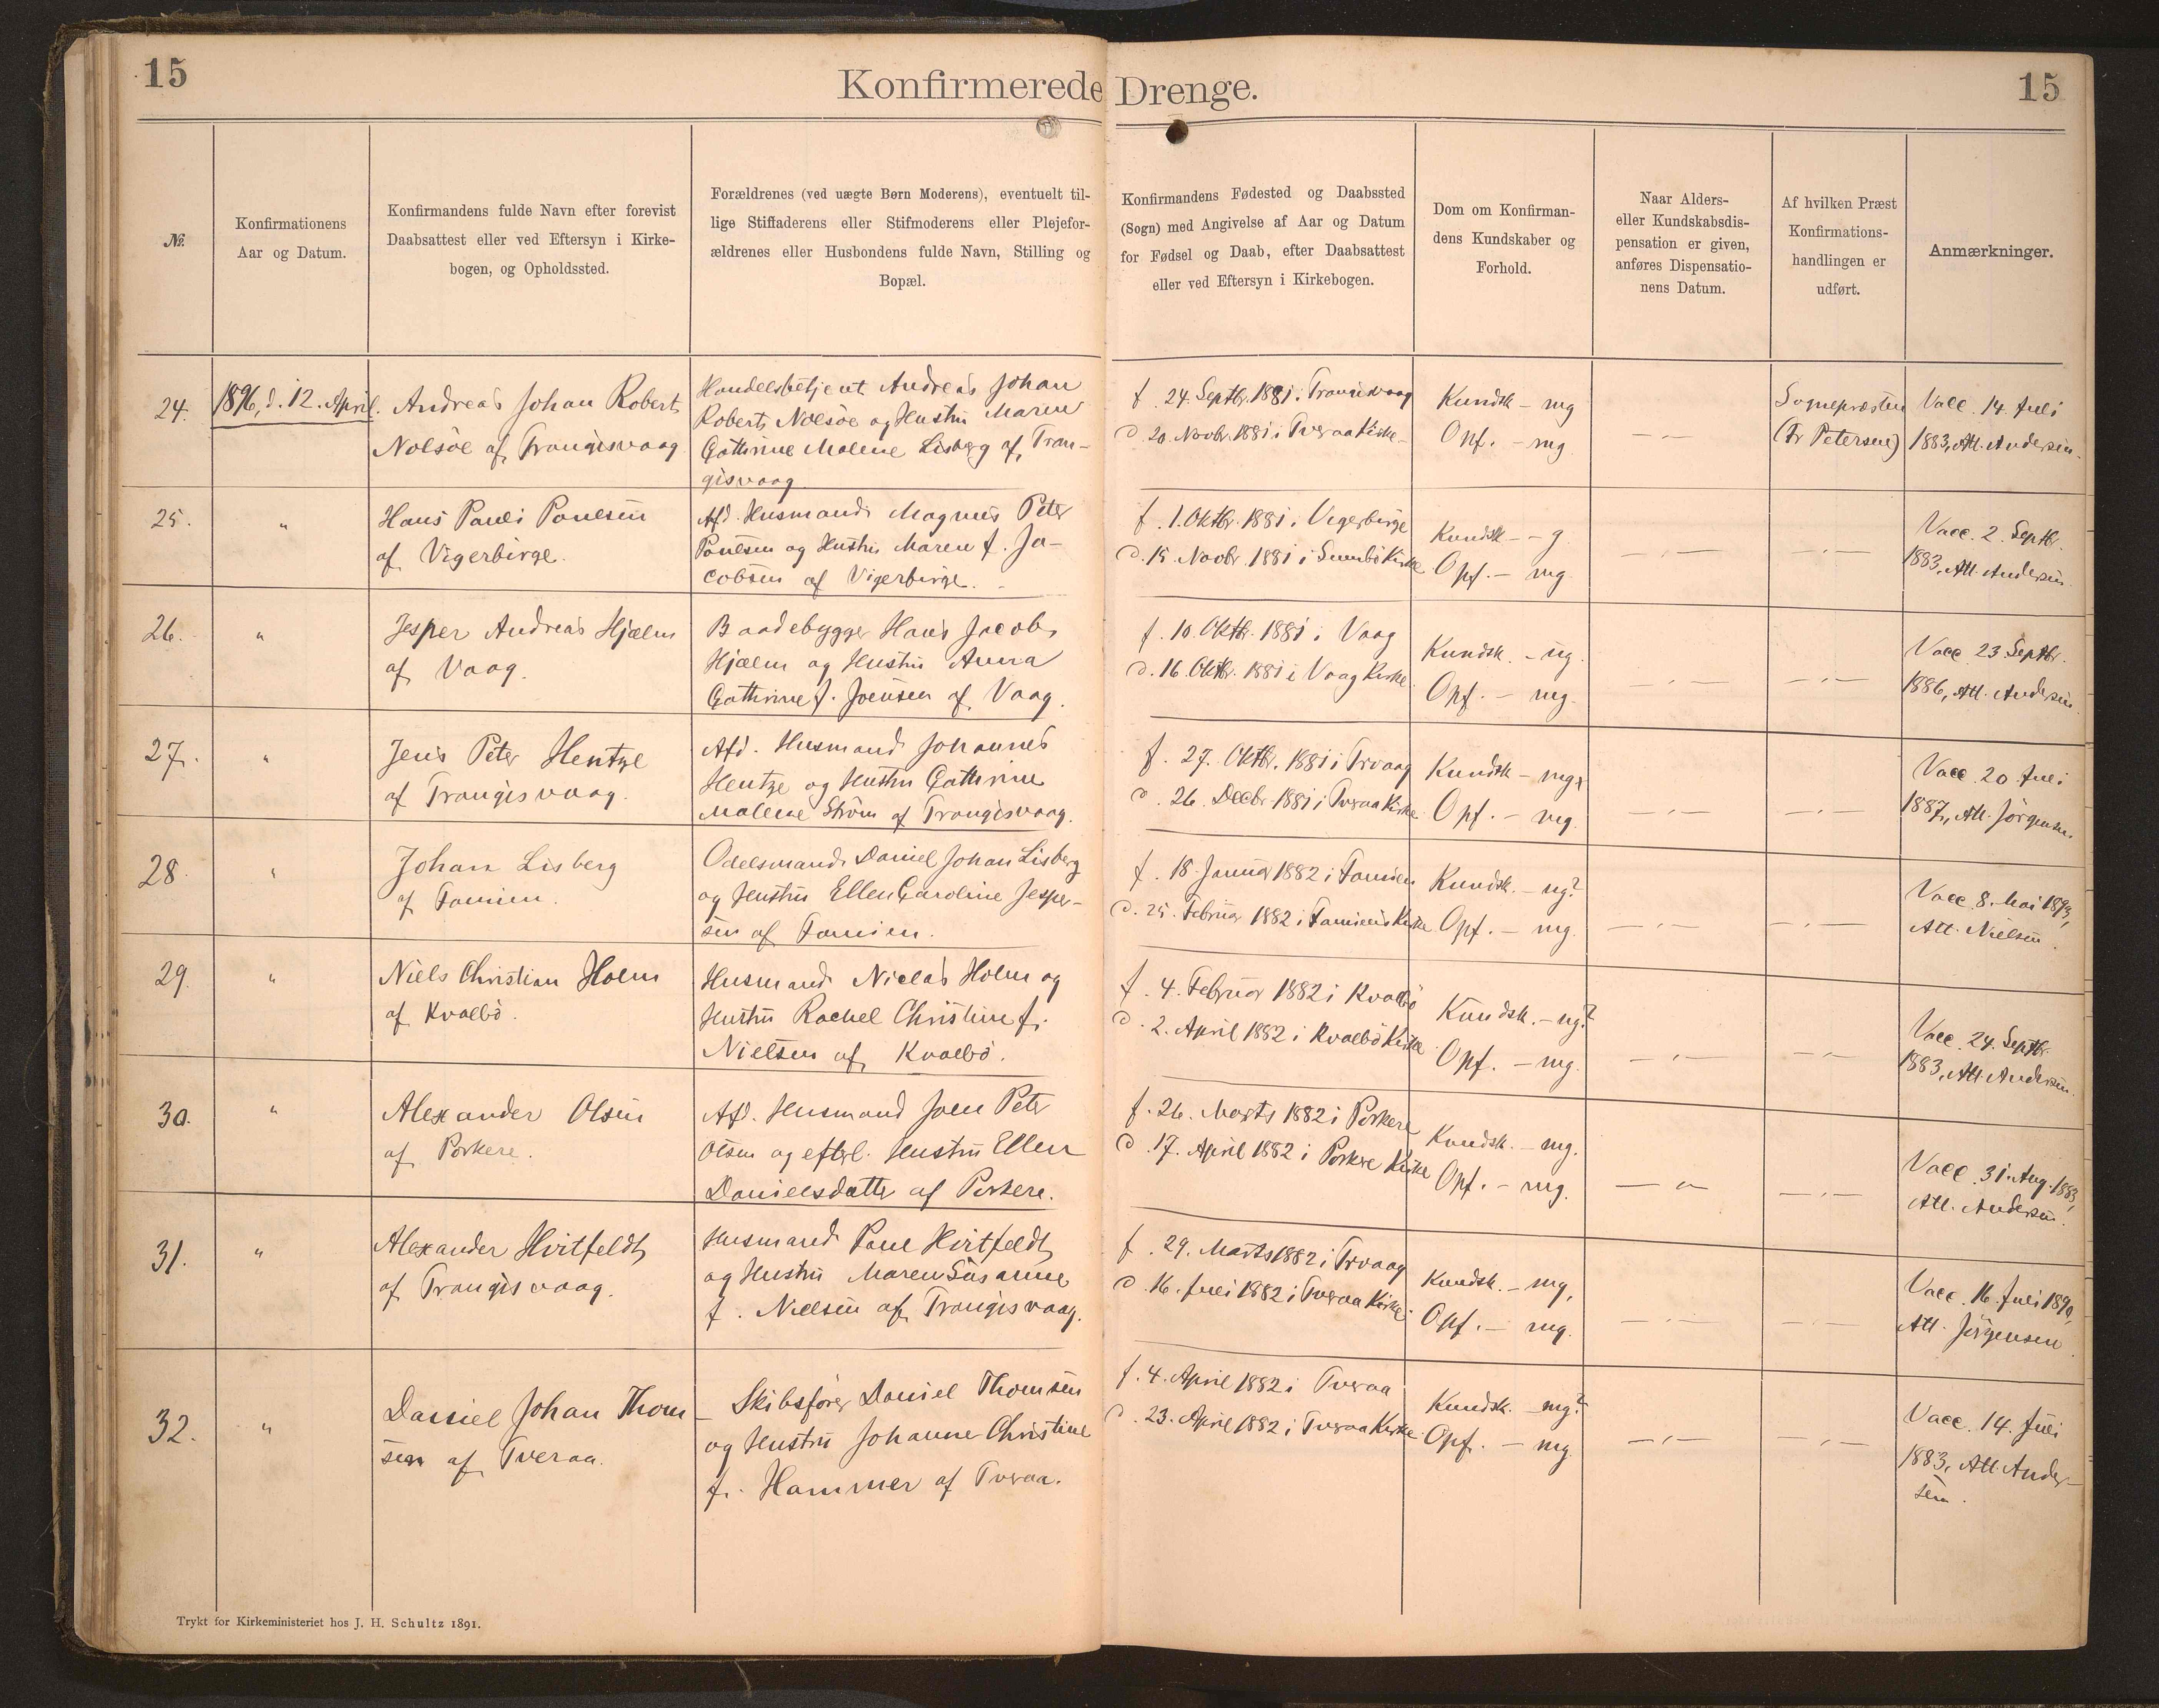 15
Konfirmerede Drenge.
15
No.
Konfirmationens
Aar og Datum.
Konfirmandens fulde Navn efter forevist
Daabsattest eller ved Eftersyn i Kirke-
bogen, og Opholdssted.
Forældrenes (ved uægte Børn Moderens), eventuelt til-
lige Stiffaderens eller Stifmoderens eller Plejefor-
ældrenes eller Husbondens fulde Navn, Stilling og
Bopæl.
Konfirmandens Fødested og Daabssted
(Sogn) med Angivelse af Aar og Datum
for Fødsel og Daab, efter Daabsattest
eller ved Eftersyn i Kirkebogen.
Dom om Konfirman-
dens Kundskaber og
Forhold.
Naar Alders-
eller Kundskabsdis-
pensation er given,
anføres Dispensatio-
nens Datum.
Af hvilken Præst
Konfirmations-
handlingen er
udført.
Anmærkninger.
24.
1896, d. 12. April.
Andreas Johan Roberts
Nolsöe af Trangisvaag
Handelsbetjent Andreas Johan
Roberts Nolsöe og Hustru Maren
Cathrine Malene Lisberg af Tran-
gisvaag
f. 24. Septbr. 1881 i Trangisvaag
d. 20. Novbr. 1881 i Tveraa Kirke
Kundsk - mg
Opf. - mg
— „ —
Sognepræsten
(Fr Petersen)
Vacc. 14. Juli
1883, Att. Andersen.
25.
"
Hans Pauli Poulsen
af Vigerbirge.
Afd. Husmand Magnus Peter
Poulsen og Hustru Maren f. Ja-
cobsen af Vigerbirge.
f. 1. Oktbr. 1881 i Vegerbirge
d. 15. Novbr. 1881 i Sumbö Kirke
Kundsk - - g
Opf. - mg
— „ —
— „ —
Vacc. 2. Septbr.
1883, Att. Andersen
26.
"
Jesper Andreas Hjælm
af Vaag.
Baadebygger Hans Jacob
Hjælm og Hustru Anna
Cathrine f. Joensen af Vaag.
f. 10. Oktbr. 1881 i Vaag
d. 16. Oktbr. 1881 i Vaag Kirke
Kundsk. - ug.
Opf. - mg.
— „ —
— „ —
Vacc. 23. Septbr.
1886, Att. Andersen
27.
"
Jens Peter Hentze
af Trangisvaag.
Afd. Husmand Johannes
Hentze og Hustru Cathrine
Malene Ström af Trangisvaag.
f. 27. Oktbr. 1881 i Trvaag
d. 26. Decbr 1881 i Tveraa Kirke
Kundsk - mg
Opf. - mg
— „ —
— „ —
Vacc. 20 Juli
1887, Att. Jörgensen.
28.
"
Johan Lisberg
af Famien.
Odelsmand Daniel Johan Lisberg
og Hustru Ellen Caroline Jesper-
sen af Famien.
f. 18. Januar 1882 i Famien
d. 25. Februar 1882 i Famiens Kirke
Kundsk. - ug?
Opf. - mg.
— „ —
— „ —
Vacc. 8. Mai 1893,
Att. Nielsen.
29.
"
Niels Christian Holm
af Kvalbö.
Husmand Niclas Holm og
Hustru Rachel Christine f.
Nielsen af Kvalbö.
f. 4. Februar 1882 i Kvalbö
d. 2. April 1882 i Kvalbö Kirke
Kundsk. - ug?
Opf. - mg.
— „ —
— „ —
Vacc. 24. Septbr.
1883, Att. Andersen.
30.
"
Alexander Olsen
af Porkere.
Afd. Husmand Joen Peter
Olsen og efterl. Hustru Ellen
Danielsdatter af Porkere.
f. 26. Marts 1882 i Porkere
d. 17. April 1882 i Porkere Kirke
Kundsk. - mg.
Opf. - mg.
— „ —
— „ —
Vacc. 31. Aug. 1883,
Att. Andersen.
31.
"
Alexander Hvitfeldt
af Trangisvaag.
Husmand Poul Hvitfeldt
og Hustru Maren Susanne
f. Nielsen af Trangisvaag.
f. 29. Marts 1882 i Trvaag
d. 16. Juli 1882 i Tveraa Kirke.
Kundsk. - mg,
Opf. - mg.
— „ —
— „ —
Vacc. 16. Juli 1890,
Att. Jörgensen.
32.
"
Daniel Johan Thom
sen af Tveraa.
Skibsförer Daniel Thomsen
og Hustru Johanne Christine
f. Hammer af Tveraa.
f. 4. April 1882 i Tveraa
d. 23. April 1882 i Tveraa Kirke
Kundsk. - mg?
Opf. - mg
— „ —
— „ —
Vacc. 14. Juli
1883, Att. Ander-
sen.
Trykt for Kirkeministeriet hos J. H. Schultz 1891.